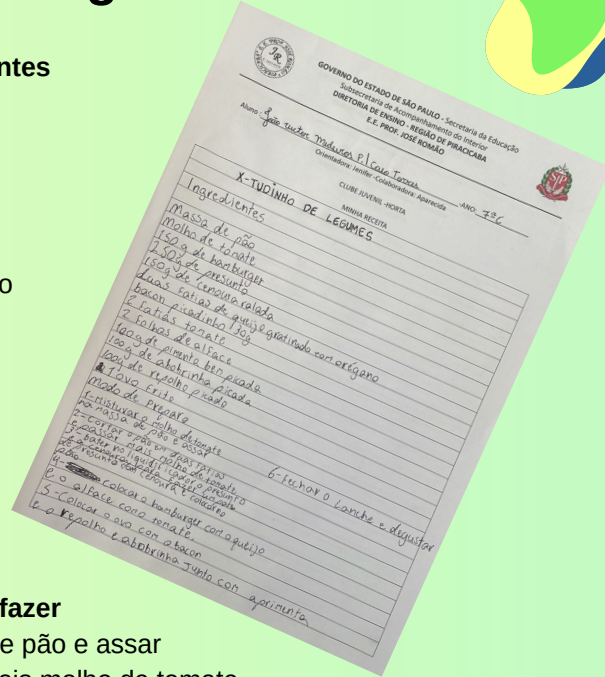 ntes
o
fazer
e pão e assar
GOVERNO DO ESTADO DE SÃO PAULO - Secretaria da Educação
Subsecretaria de Acompanhamento do Interior
DIRETORIA DE ENSINO - REGIÃO DE PIRACICABA
E.E. PROF. JOSÉ ROMÃO
Aluno: João P.| Caio ANO: 7ºC
Orientadora: Jenifer -Colaboradora: Aparecida
CLUBE JUVENIL -HORTA
MINHA RECEITA
X-TUDINHO DE LEGUMES
Ingredientes
Massa de pão
Molho de tomate
150g de hamburger
250g de presunto
150g de cenoura ralada
duas fatias de queijo gratinado com orégano
bacon picadinho 130g
2 fatias tomate
2 folhas de alface
100g de pimenta bem picada
100g de abobrinha picada
100g de repolho picado
1 ovo frito
modo de preparo
1-Misturar o molho de tomate
na massa de pão e assar
2-Cortar o pão em duas fatias
e passar mais molho de tomate
3-bater no liquidificador o presunto
e a cenoura para fazer um patê
de presunto com cenoura e colocar no
pão
4- colocar o hamburger com o queijo
e o alface com o tomate.
5-Colocar o ovo com o bacon
e o repolho e abobrinha junto com a pimenta
6-Fechar o lanche e degustar